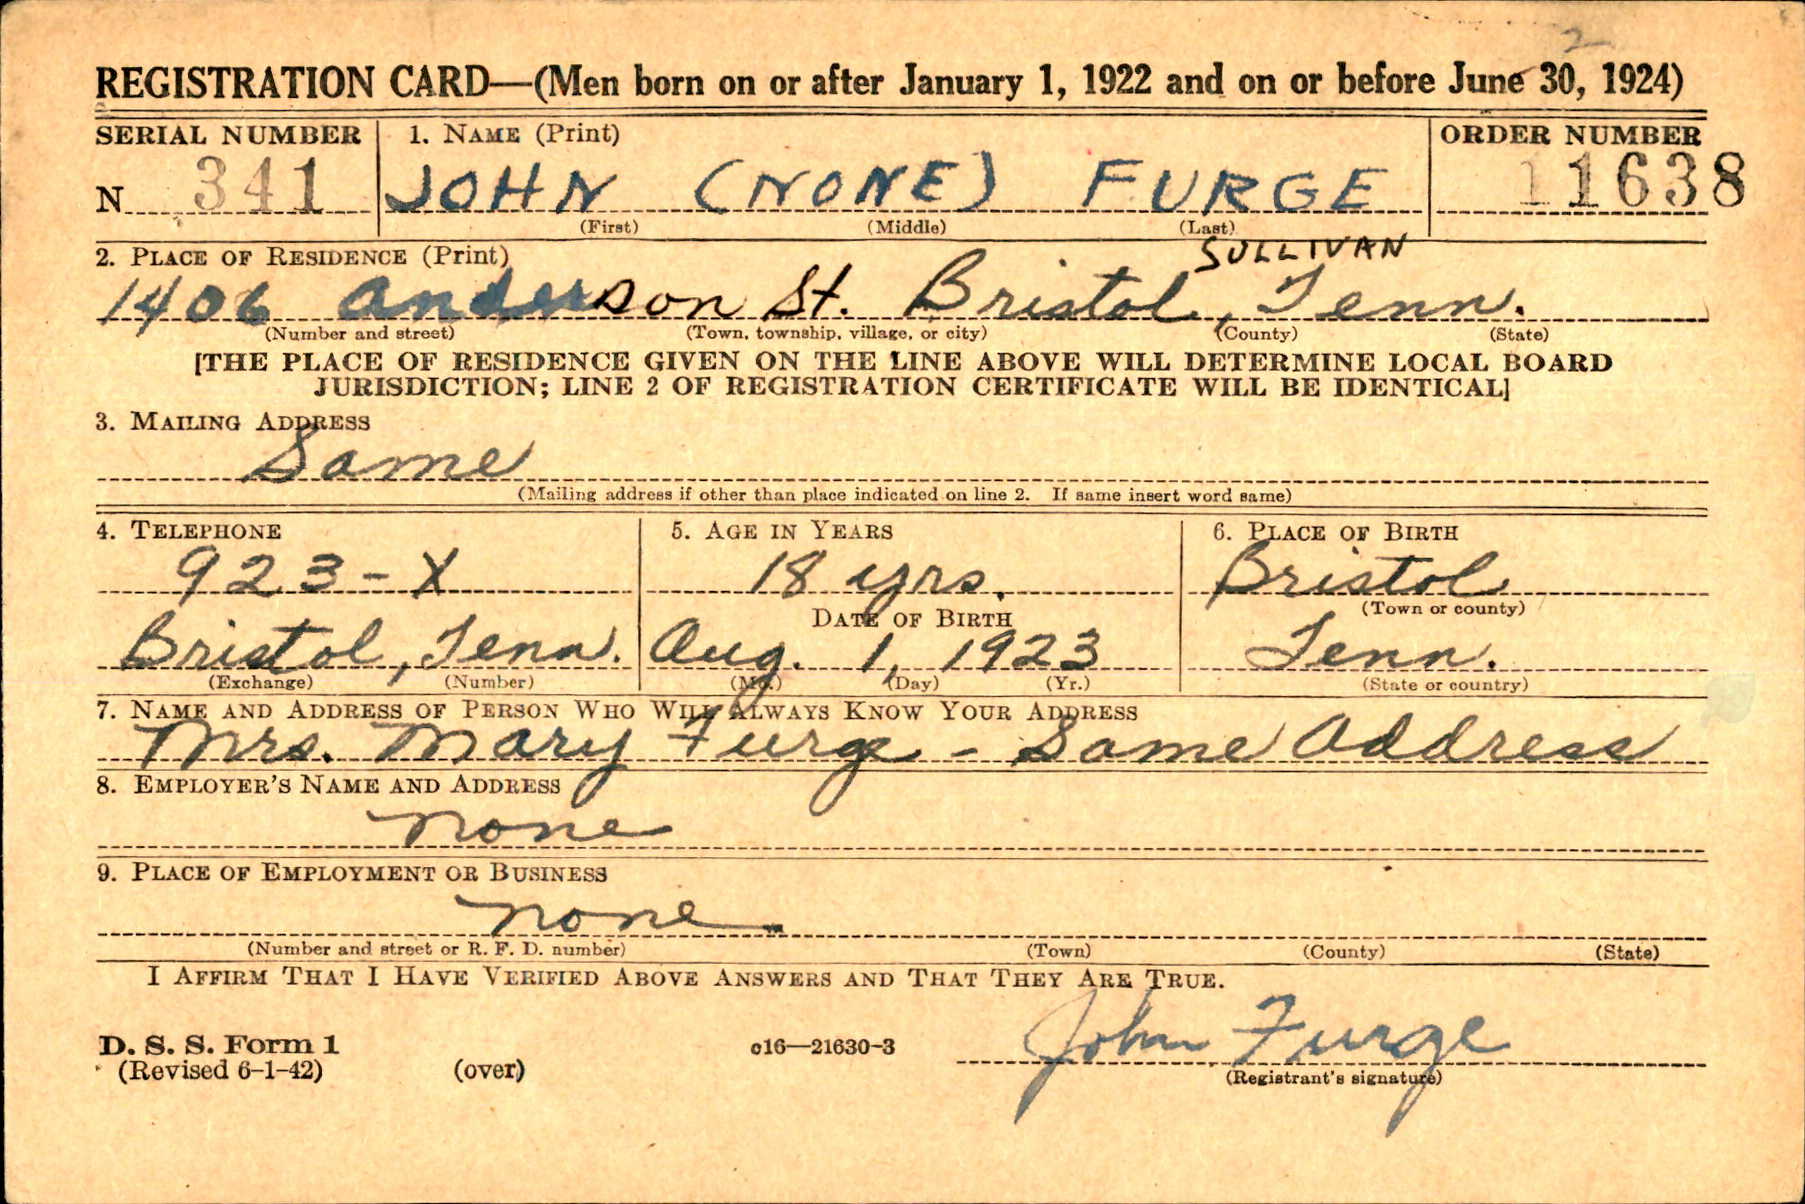 2
REGISTRATION CARD—(Men born on or after January 1, 1922 and on or before June 30, 1924)
SERIAL NUMBER 1. NAME (Print) ORDER NUMBER
N 341 JOHN (NONE) FURGE 11638
(First) (Middle) (Last)
2. PLACE OF RESIDENCE (Print) SULLIVAN
1406 Anderson St. Bristol, Tenn.
(Number and street) (Town, township, village, or city) (County) (State)
[THE PLACE OF RESIDENCE GIVEN ON THE LINE ABOVE WILL DETERMINE LOCAL BOARD
JURISDICTION; LINE 2 OF REGISTRATION CERTIFICATE WILL BE IDENTICAL]
3. MAILING ADDRESS
Same
(Mailing address if other than place indicated on line 2. If same insert word same)
4. TELEPHONE 5. AGE IN YEARS 6. PLACE OF BIRTH
923-X 18 yrs. Bristol
DATE OF BIRTH (Town or county)
Bristol, Tenn. Aug. 1, 1923 Tenn.
(Exchange) (Number) (Mo.) (Day) (Yr.) (State or country)
7. NAME AND ADDRESS OF PERSON WHO WILL ALWAYS KNOW YOUR ADDRESS
Mrs. Mary Furge - Same Address
8. EMPLOYER'S NAME AND ADDRESS
none
9. PLACE OF EMPLOYMENT OR BUSINESS
none
(Number and street or R. F. D. number) (Town) (County) (State)
I AFFIRM THAT I HAVE VERIFIED ABOVE ANSWERS AND THAT THEY ARE TRUE.
John Furge
D. S. S. Form 1 c16—21630-3
(Revised 6-1-42) (over) (Registrant's signature)